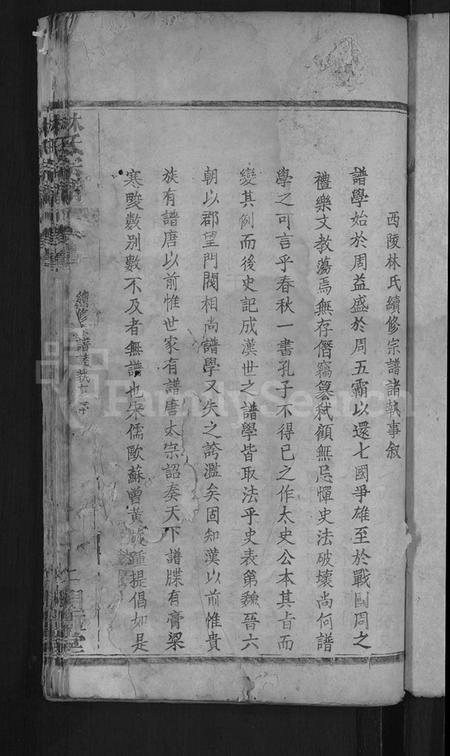 西陵林氏續修宗譜諸執事叙
譜學始於周益盛於周五霸以還七國爭雄至於戰國周之
禮樂文教蕩焉無存僭竊篡弒顧無忌憚史法破壞尚何譜
學之可言乎春秋一書孔子不得已之作太史公本其旨而
變其例而後史記成漢世之譜學皆取法乎史表第魏晉六
朝以郡望門閥相尚譜學又失之誇濫矣固知漢以前惟貴
族有譜唐以前惟世家有譜唐太宗詔奏天下譜牒有膏粱
寒畯數別數不及者無譜也宋儒歐蘇曾黃踵提倡如是
林氏宗譜
續修譜諸執事叙
FamilySearch